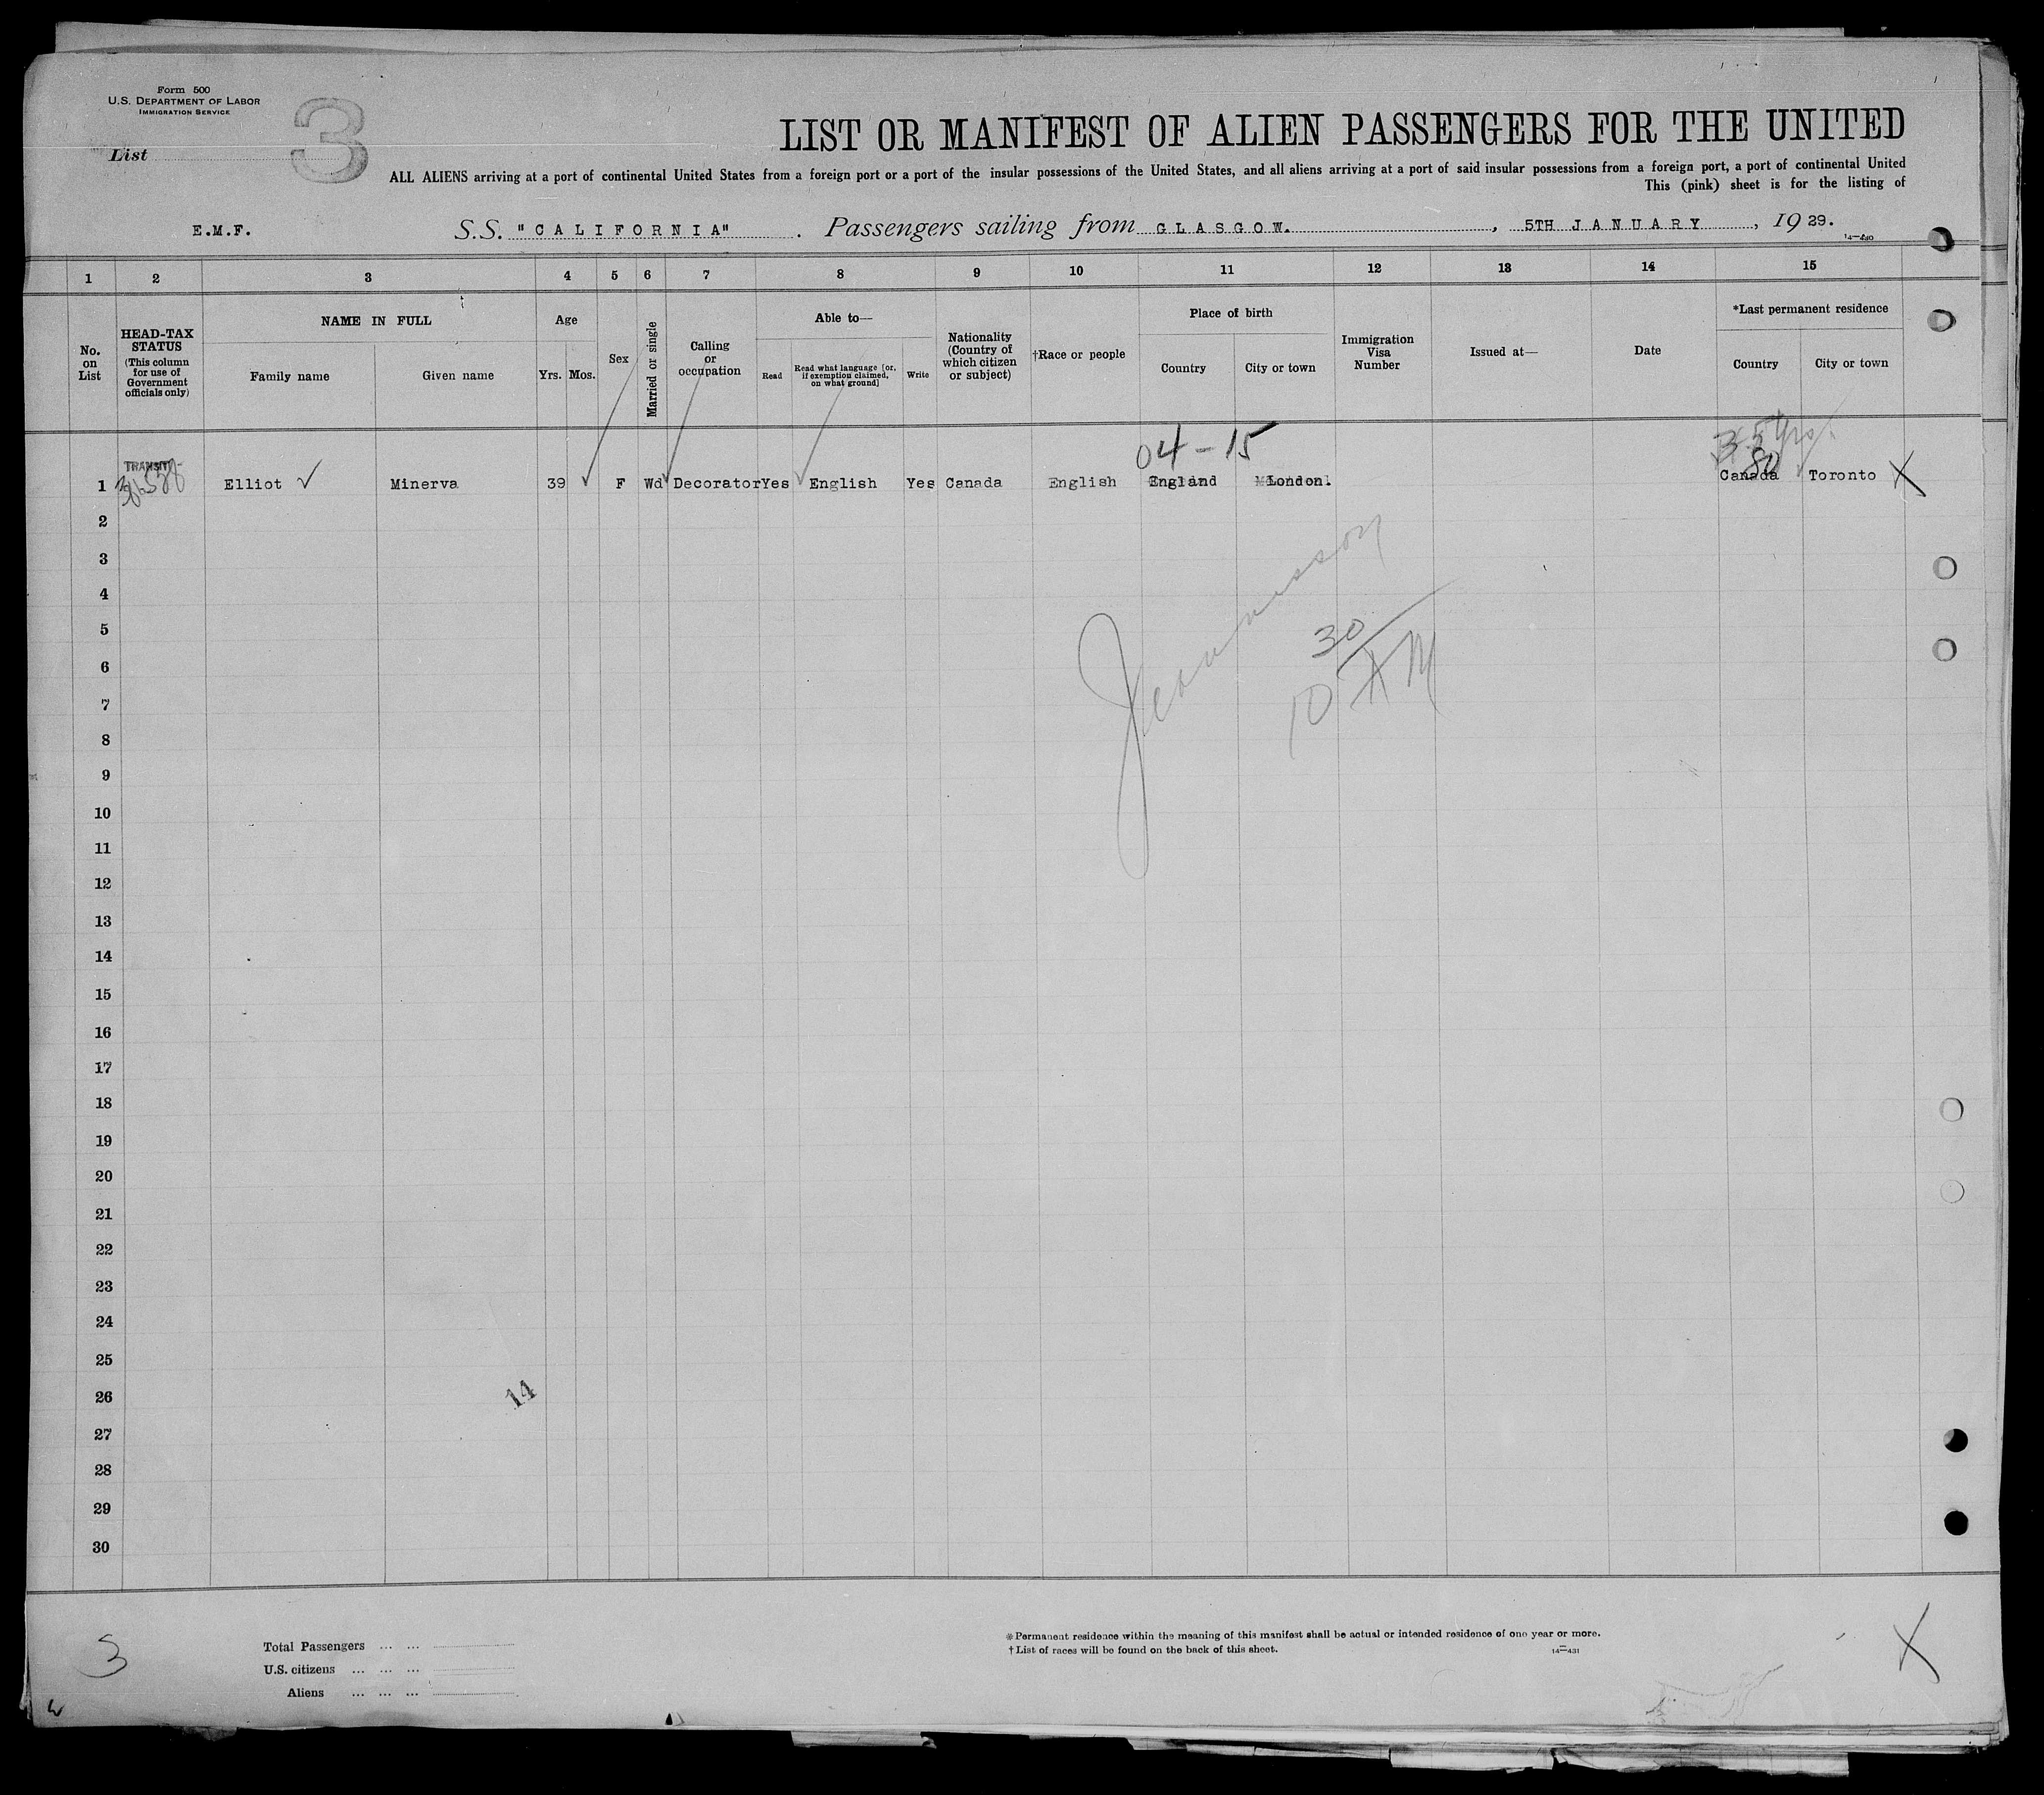 Form 500
U.S. DEPARTMENT OF LABOR
IMMIGRATION SERVICE
List 3
LIST OR MANIFEST OF ALIEN PASSENGERS FOR THE UNITED
ALL ALIENS arriving at a port of continental United States from a foreign port or a port of the insular possessions of the United States, and all aliens arriving at a port of said insular possessions from a foreign port, a port of continental United
This (pink) sheet is for the listing of
E.M.F. S.S. "CALIFORNIA" . Passengers sailing from GLASGOW. , 5TH JANUARY , 1929.
1 2 3 4 5 6 7 8 9 10 11 12 13 14 15
No. on List
HEAD-TAX STATUS (This column for use of Government officials only)
NAME IN FULL
Family name Given name
Age
Yrs. Mos.
Sex
Married or single
Calling or occupation
Able to—
Read Read what language [or, if exemption claimed, on what ground] Write
Nationality (Country of which citizen or subject)
†Race or people
Place of birth
Country City or town
Immigration Visa Number
Issued at—
Date
*Last permanent residence
Country City or town
04-15
TRANSIT
80
1 Elliot ✓ Minerva 39 ✓ F Wd Decorator Yes English Yes Canada English England London. Canada Toronto X
2
3
4
5
6
7
8
9
10
11
12
13
14
15
16
17
18
19
20
21
22
23
24
25
26
27
28
29
30
30
10 AM
14
3
Total Passengers ... ...
U.S. citizens ... ... ...
Aliens ... ... ...
*Permanent residence within the meaning of this manifest shall be actual or intended residence of one year or more.
†List of races will be found on the back of this sheet. 14—431
X